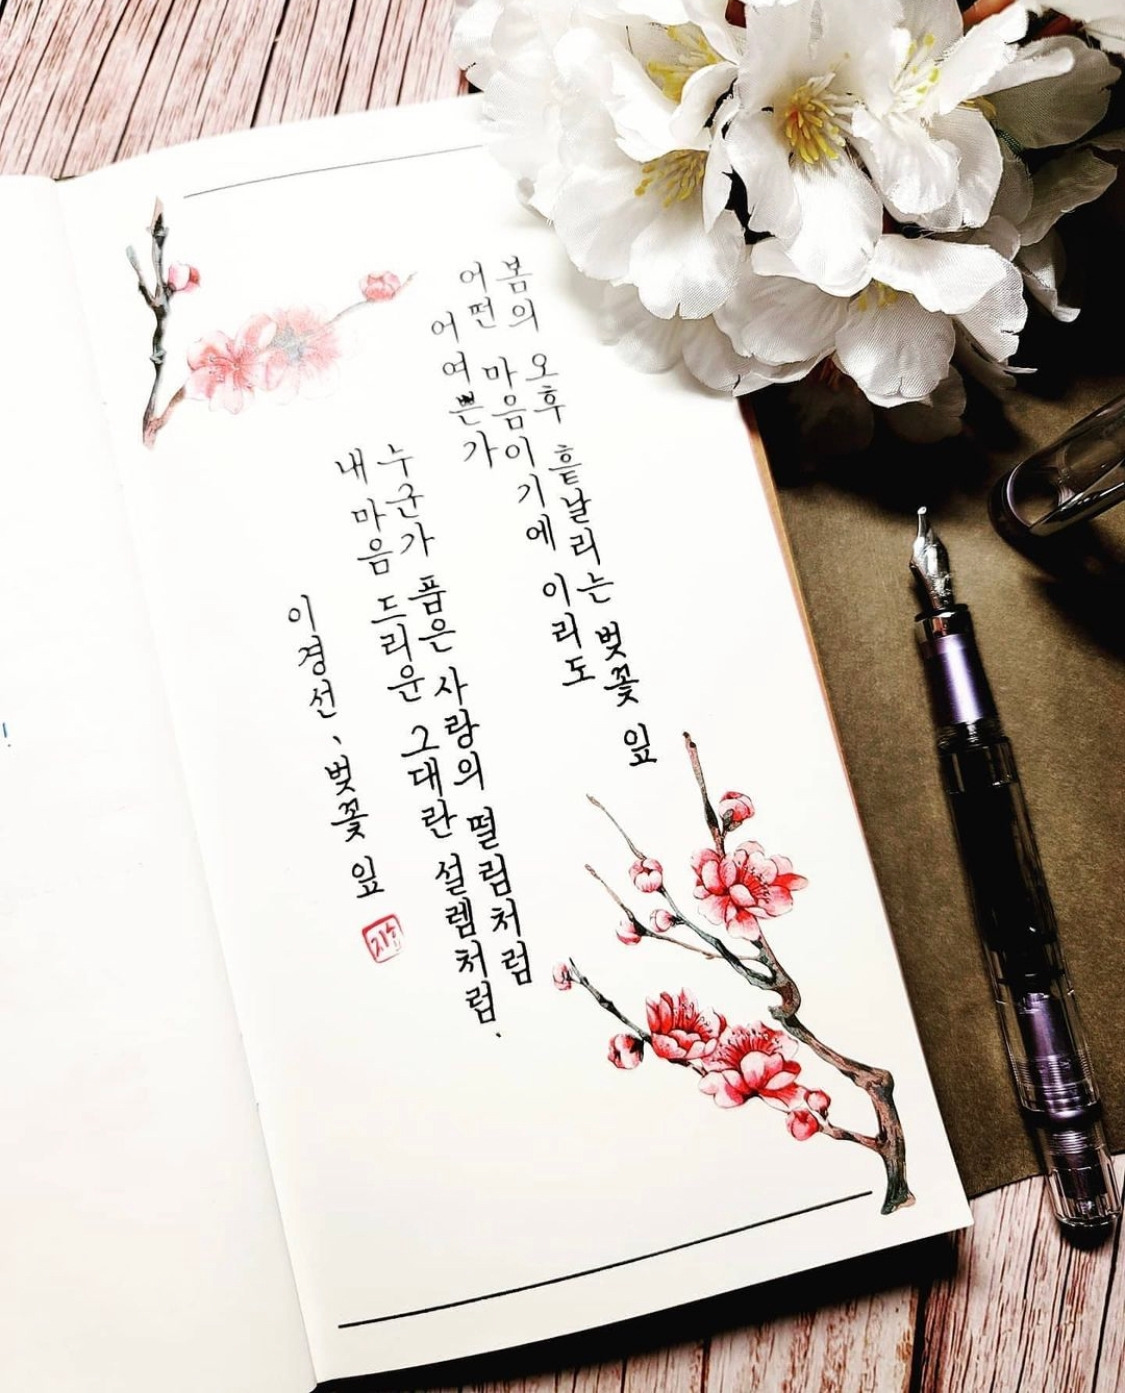 봄의 오후 흩날리는 벚꽃 잎
어떤 마음이기에 이리도
어여쁜가
누군가 품은 사랑의 떨림처럼
내 마음 드리운 그대란 설렘처럼.
이경선, 벚꽃 잎